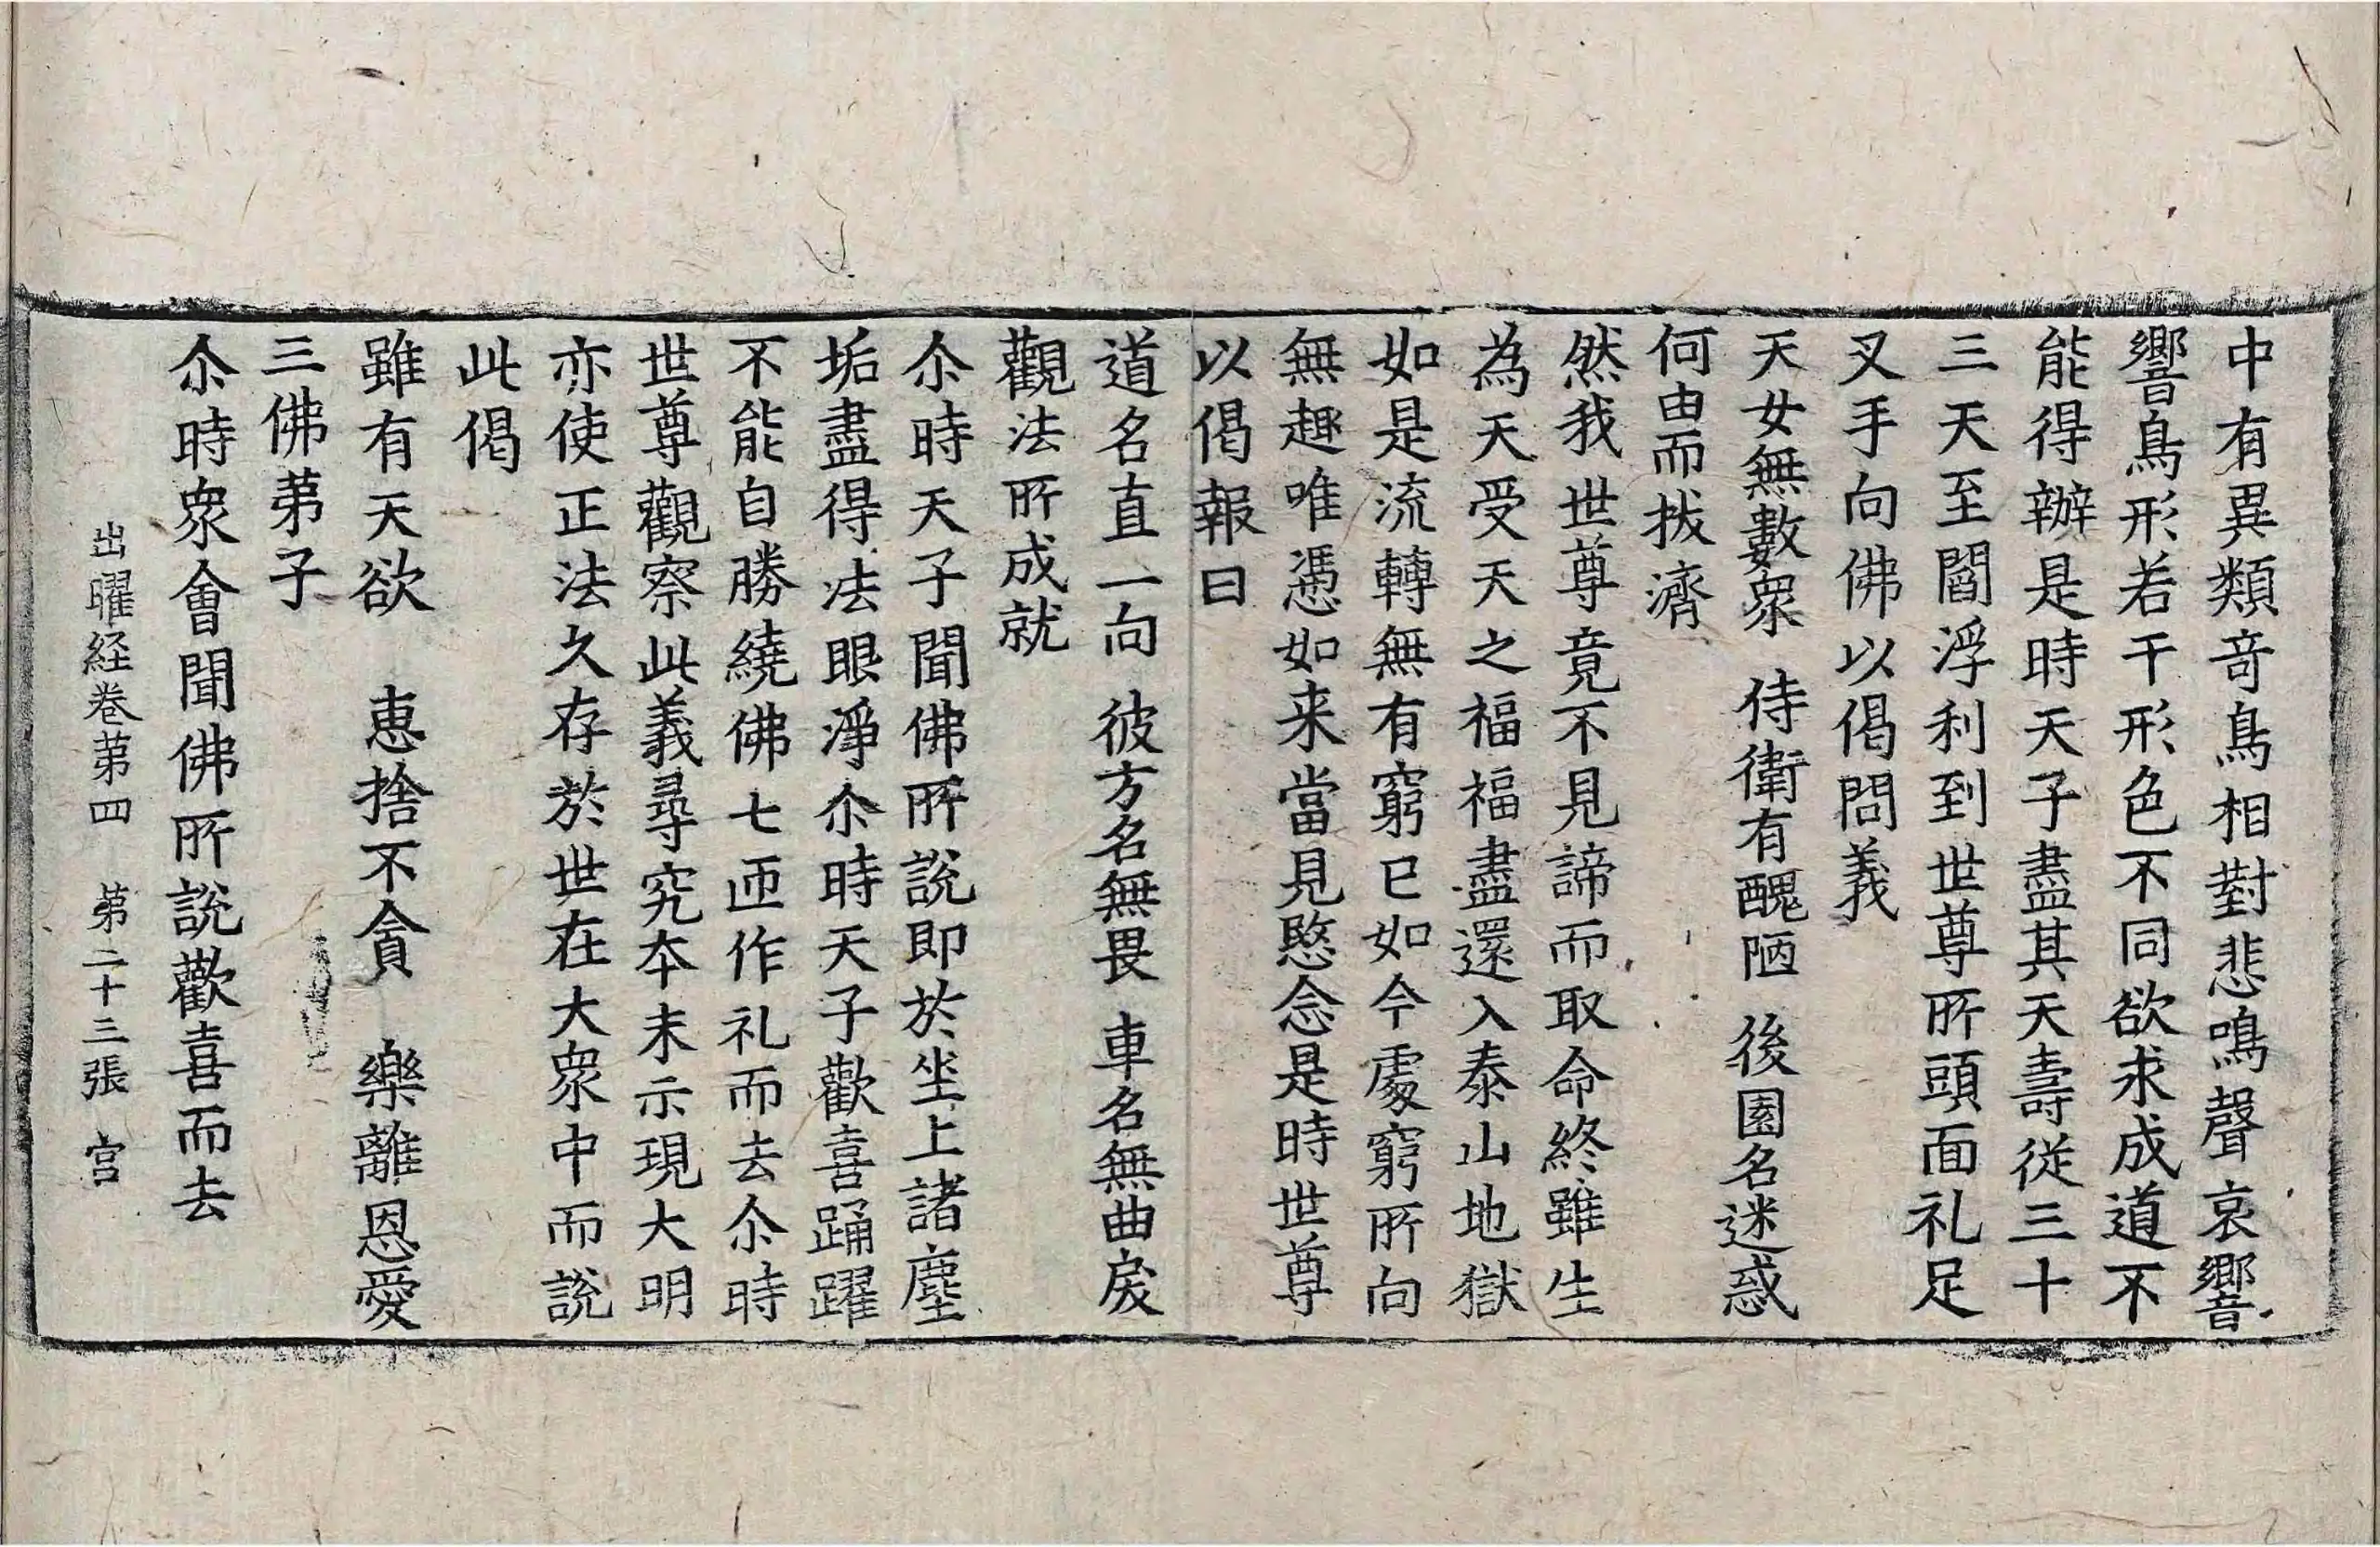 中有異類奇鳥相對悲鳴聲哀響
響鳥形若干形色不同欲求成道不
能得辦是時天子盡其天壽從三十
三天至閻浮利到世尊所頭面礼足
叉手向佛以偈問義
天女無數衆　侍衛有醜陋　後園名迷惑
何由而拔濟
然我世尊竟不見諦而取命終雖生
為天受天之福福盡還入泰山地獄
如是流轉無有窮已如今處窮所向
無趣唯憑如来當見愍念是時世尊
以偈報曰
道名直一向　彼方名無畏　車名無曲戾
觀法所成就
尒時天子聞佛所說即於坐上諸塵
垢盡得法眼淨尒時天子歡喜踊躍
不能自勝繞佛七匝作礼而去尒時
世尊觀察此義尋究本末示現大明
亦使正法久存於世在大衆中而說
此偈
雖有天欲　恵捨不貪　樂離恩愛
三佛弟子
尒時衆會聞佛所說歡喜而去
出曜経卷第四　第二十三張　宮